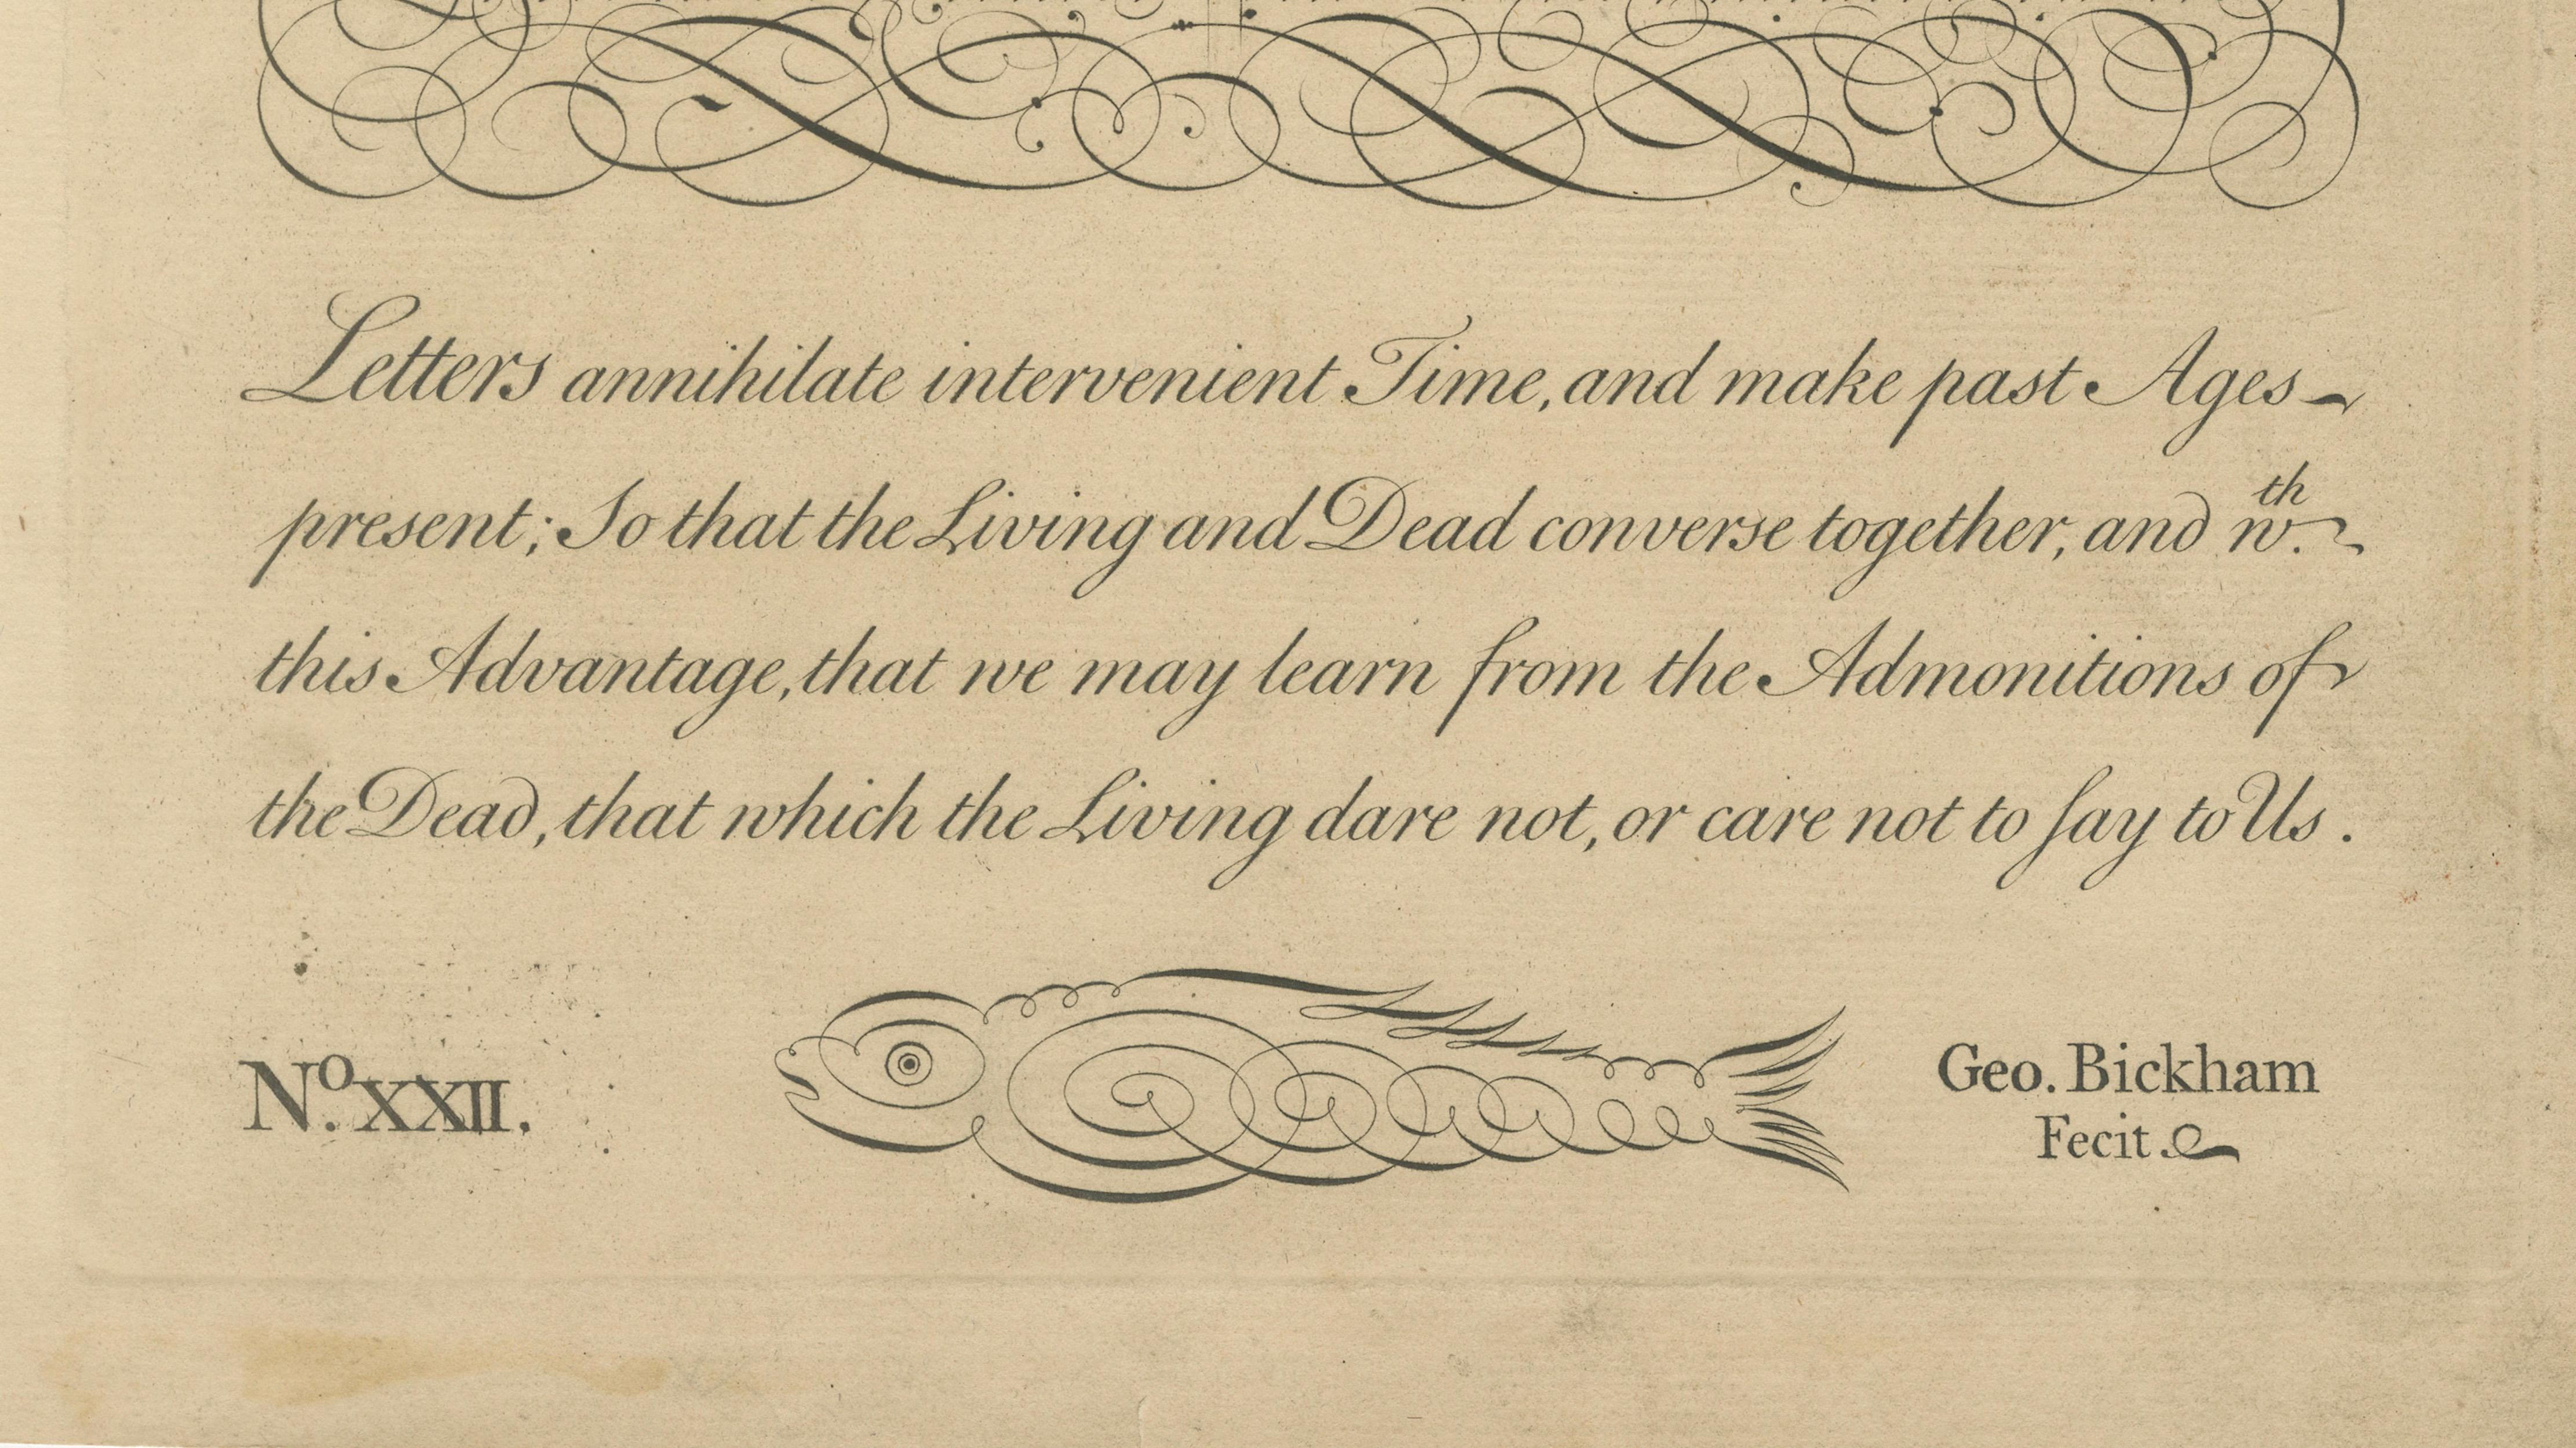 Letters annihilate intervenient Time, and make past Ages
present; So that the Living and Dead converse together, and w.th
this Advantage, that we may learn from the Admonitions of
the Dead, that which the Living dare not, or care not to ſay to Us.
No. XXII.
Geo. Bickham
Fecit.